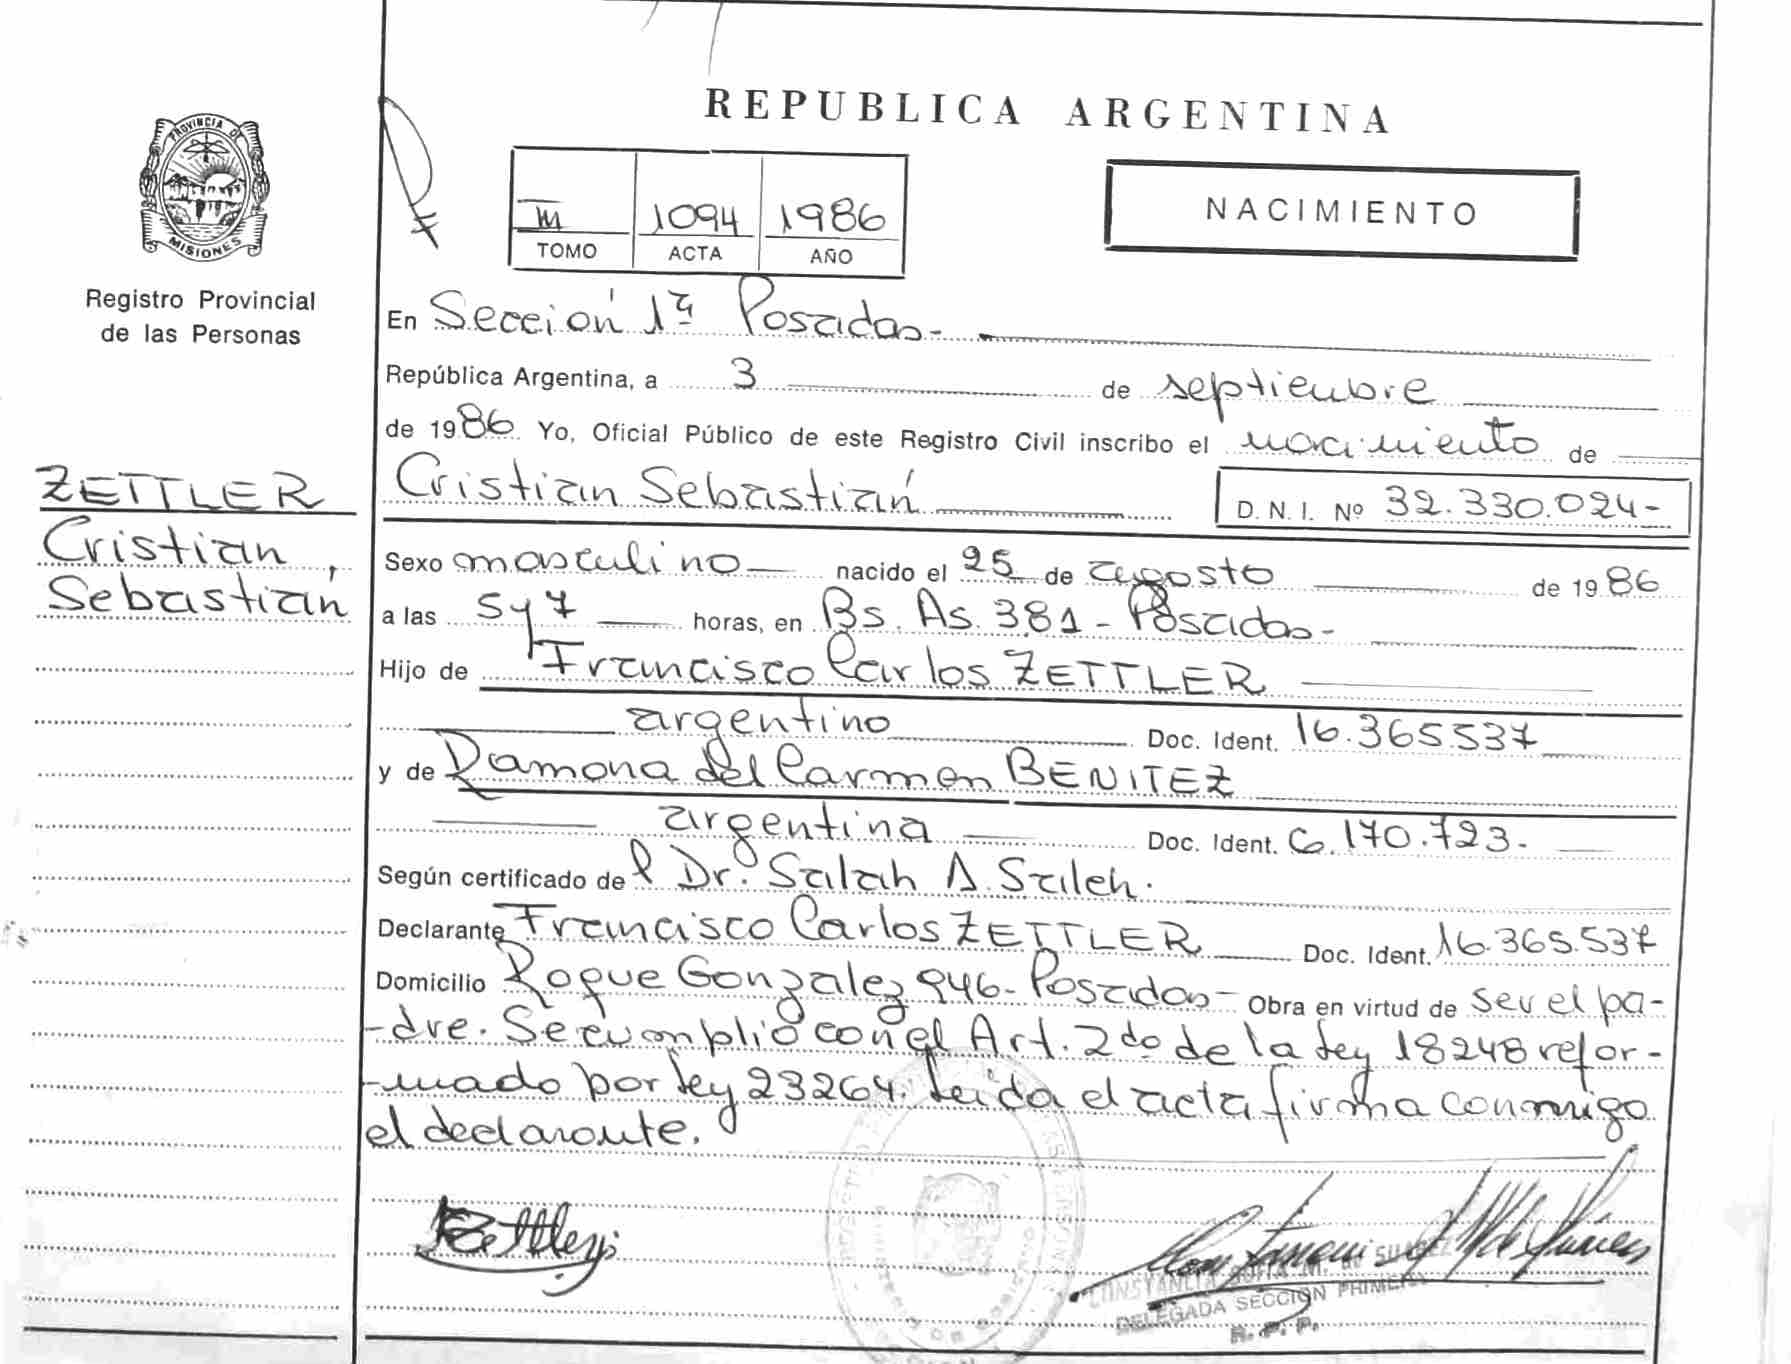 REPUBLICA ARGENTINA
PROVINCIA DE
MISIONES
Registro Provincial
de las Personas
III 1094 1986
TOMO ACTA AÑO
NACIMIENTO
En Sección 1ª Posadas-
República Argentina, a 3 de septiembre
de 1986. Yo, Oficial Público de este Registro Civil inscribo el nacimiento de
Cristian Sebastián D. N. I. Nº 32.330.024-
ZETTLER
Cristian
Sebastián
Sexo masculino nacido el 25 de agosto de 1986
a las 5 y 7 horas, en Bs. As. 381 - Posadas-
Hijo de Francisco Carlos ZETTLER
argentino Doc. Ident. 16.365.537
y de Ramona del Carmen BENITEZ
argentina Doc. Ident. 6.170.723.-
Según certificado del Dr. Salah A. Saleh.
Declarante Francisco Carlos ZETTLER Doc. Ident. 16.365.537
Domicilio Roque Gonzalez 946- Posadas- Obra en virtud de ser el pa-
-dre. Se cumplió con el Art. 2do de la Ley 18248 refor-
-mado por Ley 23264. Leída el acta firma conmigo
el declarante.
Zettler
SUAREZ
CONSTANCIA
DELEGADA SECCION PRIMERA
R. P. P.